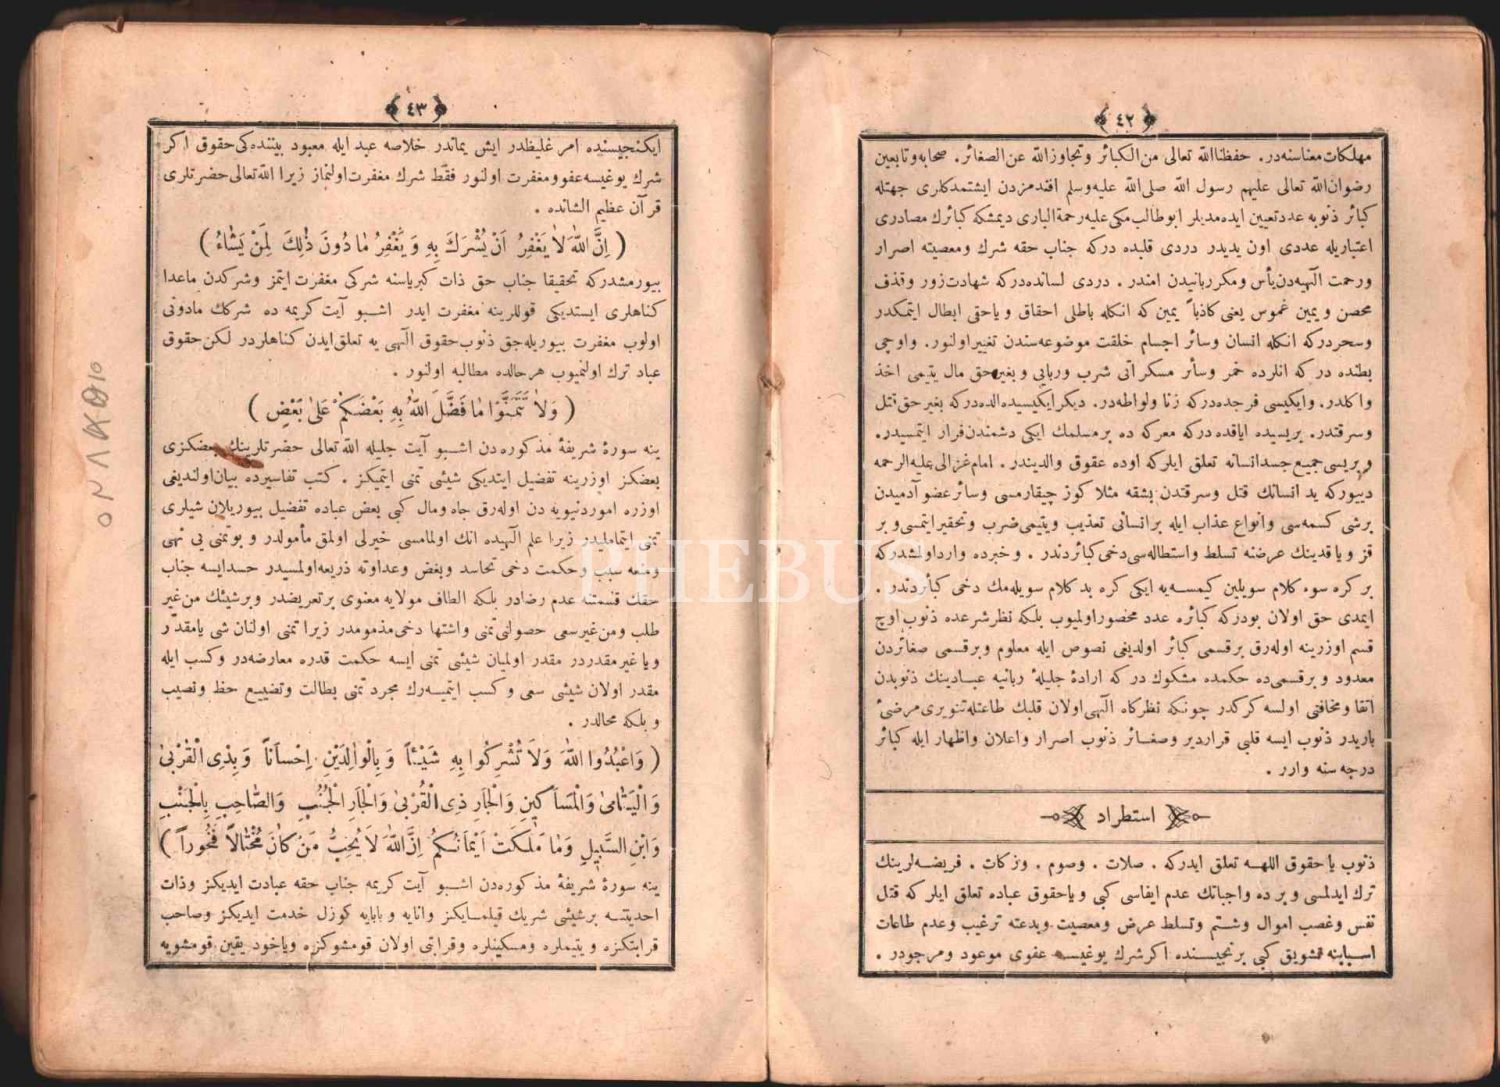 ﴿ ٤٢ ﴾
مهلكات معناسنه در . حفظنا الله تعالى من الكبائر وتجاوز الله عن الصغائر . صحابه وتابعين
رضوان الله تعالى عليهم رسول الله صلى الله عليه وسلم افندمزدن ايشتمدكلرى جهتله
كبائر ذنوبه عدد تعيين ايده مديلر ابوطالب مكى عليه رحمة البارى ديمشكه كبائرك مصادرى
اعتباريله عددى اون يديدر دردى قلبده دركه جناب حقه شرك ومعصيته اصرار
ورحمت الهيه دن يأس ومكر ربانيدن امندر . دردى لسانده دركه شهادت زور وقذف
محصن ويمين غموس يعنى كاذباً يمين كه انكله باطلى احقاق و ياحقى ابطال ايتمكدر
وسحردركه انكله انسان وسائر اجسام خلقت موضوعه سندن تغيير اولنور . واوچى
بطنده در كه انلرده خمر وسائر مسكراتى شرب وربايى وبغير حق مال يتيمى اخذ
واكلدر . وايكيسى فرجده دركه زنا ولواطه در . ديكر ايكيسيده الده دركه بغير حق قتل
وسرقتدر . بريسيده اياقده دركه معركه ده بر مسلمك ايكى دشمندن فرار ايتمسيدر .
وبريسى جميع جسد انسانه تعلق ايلركه اوده عقوق والديندر . امام غزالى عليه الرحمه
دييوركه يد انسانك قتل وسرقتدن بشقه مثلا كوز چيقارمسى وسائر عضو آدميدن
برشى كسمه سى وانواع عذاب ايله بر انسانى تعذيب ويتيمى ضرب وتحقير ايتمسى و بر
قز ويا قدينك عرضنه تسلط واستطاله سى دخى كبائردندر . وخبرده وارد اولمشدركه
بر كره سوء كلام سويلين كيمسه يه ايكى كره يد كلام سويله مك دخى كبائردندر .
ايمدى حق اولان بودركه كبائره عدد محصور اولميوب بلكه نظر شرعده ذنوب اوچ
قسم اوزرينه اوله رق بر قسمى كبائر اولديغى نصوص ايله معلوم وبر قسمى صغائردن
معدود و بر قسمى ده حكمده مشكوك در كه ارادۀ جليلۀ ربانيه عبادينك ذنوبدن
اتقا ومخافتى اولسه كركدر چونكه نظركاه الهى اولان قلبك طاعتله تنويرى مرضئ
باريدر ذنوب ايسه قلبى قراردير وصغائر ذنوب اصرار واعلان واظهار ايله كبائر
درجه سنه وارر .
استطراد
ذنوب يا حقوق اللهه تعلق ايدركه . صلات . وصوم . وزكات . فريضه لرينك
ترك ايدلمسى و يرده واجباتك عدم ايفاسى كبى وياحقوق عباده تعلق ايلركه قتل
نفس وغصب اموال وشتم وتسلط عرض ومعصيت وبدعته ترغيب وعدم طاعات
اسبابنه تشويق كبى برنجيسنده اكرشرك يوغيسه عفوى موعود ومرجودر .
﴿ ٤٣ ﴾
ايكنجيسنده امر غليظدر ايش يماندر خلاصه عبد ايله معبود بيننده كى حقوق اكر
شرك يوغيسه عفو ومغفرت اولنور فقط شرك مغفرت اولنماز زيرا الله تعالى حضرتلرى
قرآن عظيم الشانده .
( اِنَّ اللّٰهَ لَا يَغْفِرُ اَنْ يُشْرَكَ بِهِ وَ يَغْفِرُ مَا دُونَ ذٰلِكَ لِمَنْ يَشَاءُ )
بيورمشدركه تحقيقا جناب حق ذات كبرياسنه شركى مغفرت ايتمز وشركدن ماعدا
كناهلرى ايستديكى قوللرينه مغفرت ايدر اشبو آيت كريمه ده شركك مادونى
اولوب مغفرت بيوريله جق ذنوب حقوق الهى يه تعلق ايدن كناهلردر لكن حقوق
عباد ترك اولنميوب هر حالده مطالبه اولنور .
( وَلَا تَتَمَنَّوْا مَا فَضَّلَ اللّٰهُ بِهِ بَعْضَكُمْ عَلٰى بَعْضٍ )
ينه سورۀ شريفۀ مذكوره دن اشبو آيت جليله الله تعالى حضرتلرينك بعضكزى
بعضكز اوزرينه تفضيل ايتديكى شيئى تمنى ايتميكز . كتب تفاسيرده بيان اولنديغى
اوزره امور دنيويه دن اوله رق جاه ومال كبى بعض عباده تفضيل بيوريلان شيلرى
تمنى ايتماملیدر زيرا علم الهيده انك اولمامسى خيرلى اولمق مأمولدر و بو تمنى يى نهى
ومنعه سبب وحكمت دخى تحاسد وبغض وعداوته ذريعه اولمسيدر حسد ايسه جناب
حقك قسمتنه عدم رضادر بلكه الطاف مولايه معنوى بر تعريضدر وبرشيئك من غير
طلب ومن غير سعى حصولنى تمنى واشتها دخى مذمومدر زيرا تمنى اولنان شى يا مقدر
ويا غير مقدردر مقدر اولميان شيئى تمنى ايسه حكمت قدره معارضه در وكسب ايله
مقدر اولان شيئى سعى و كسب ايتميه رك مجرد تمنى بطالت وتضييع حظ ونصيب
و بلكه محالدر .
( وَاعْبُدُوا اللّٰهَ وَلَا تُشْرِكُوا بِهِ شَيْئًا وَ بِالْوَالِدَيْنِ اِحْسَانًا وَ بِذِى الْقُرْبٰى
وَالْيَتَامٰى وَالْمَسَاكِينِ وَالْجَارِ ذِى الْقُرْبٰى وَالْجَارِ الْجُنُبِ وَالصَّاحِبِ بِالْجَنْبِ
وَابْنِ السَّبِيلِ وَمَا مَلَكَتْ اَيْمَانُكُمْ اِنَّ اللّٰهَ لَا يُحِبُّ مَنْ كَانَ مُخْتَالًا فَخُورًا )
ينه سورۀ شريفۀ مذكوره دن اشبو آيت كريمه جناب حقه عبادت ايديكز وذات
احديتنه برشيئى شريك قيلمايكز وانايه و بابايه كوزل خدمت ايديكز وصاحب
قرابتكزه ويتيملره ومسكينلره وقراتى اولان قومشوكزه وياخود يقين قومشويه
PHEBUS